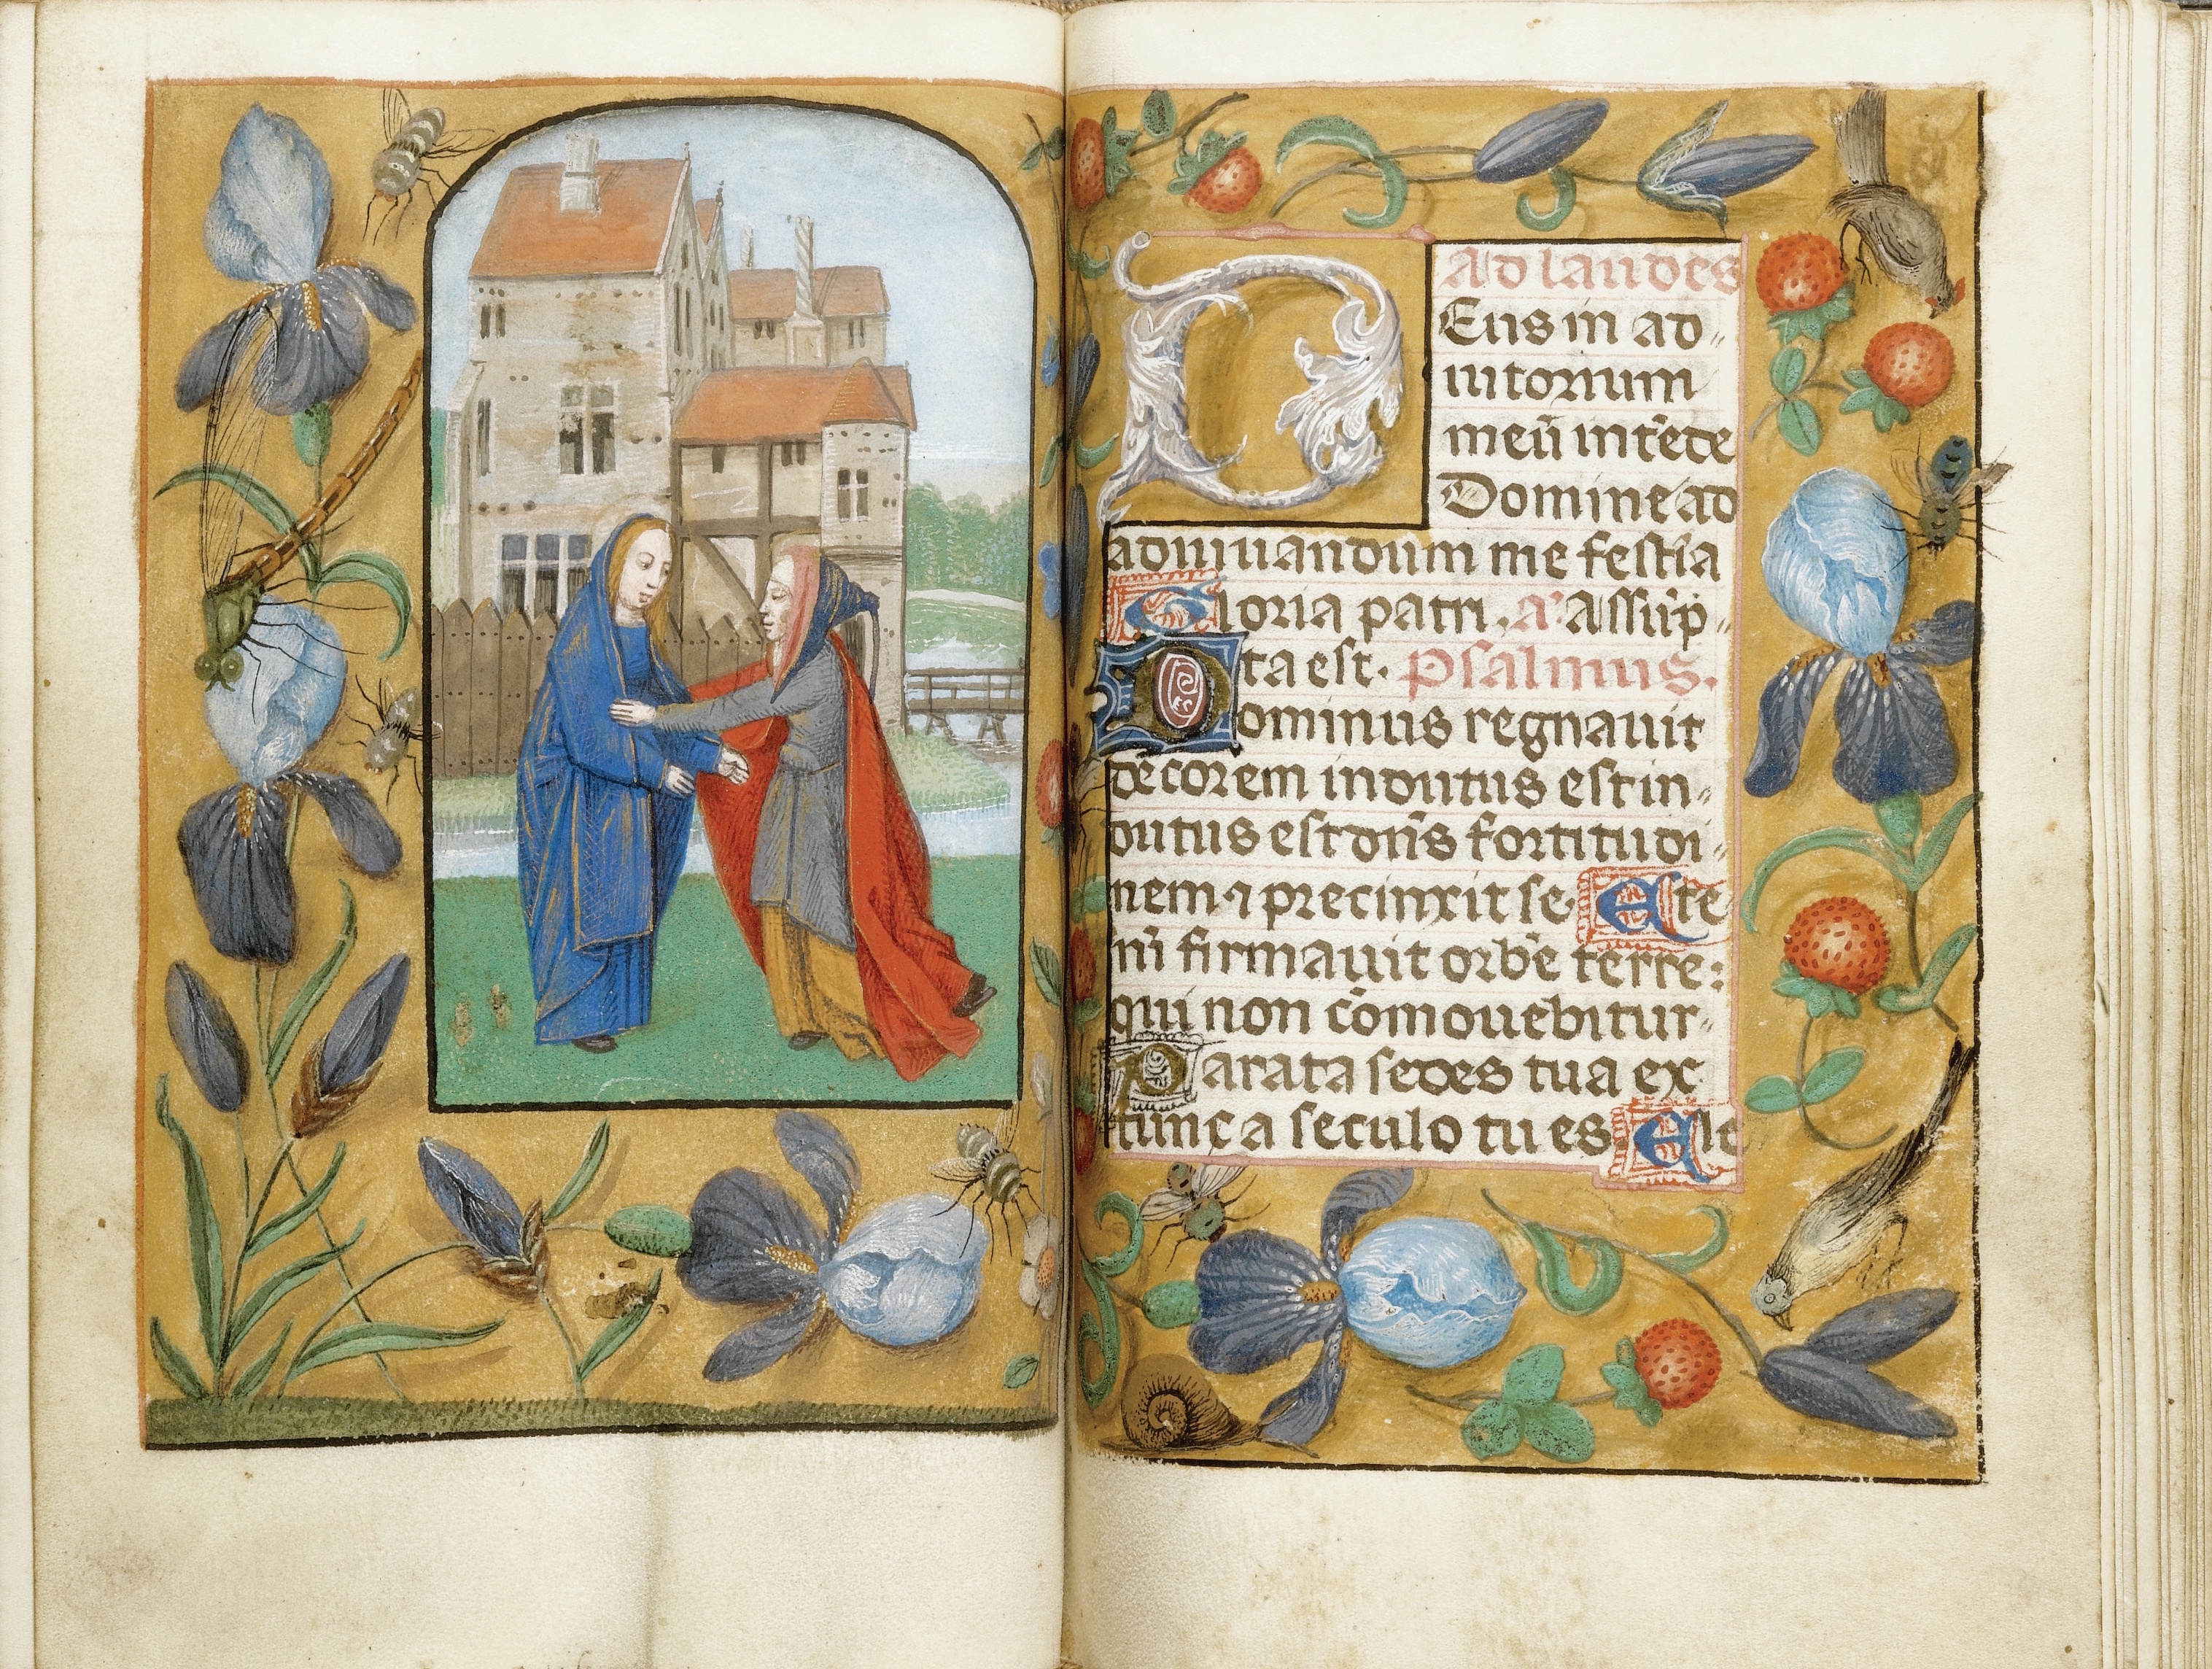 Ad laudes
Deus in ad„
iutorium
meū intēde
Domine ad
adiuuandum me festīa
Gloria patri. a' Assūp„
ta est. Psalmus.
Dominus regnauit
decorem indutus est in„
dutus est dn̄s fortitudi„
nem ⁊ precinxit se Ete
nī firmauit orbē terre:
qui non cōmouebitur„
Parata sedes tua ex
tunc a seculo tu es Ele